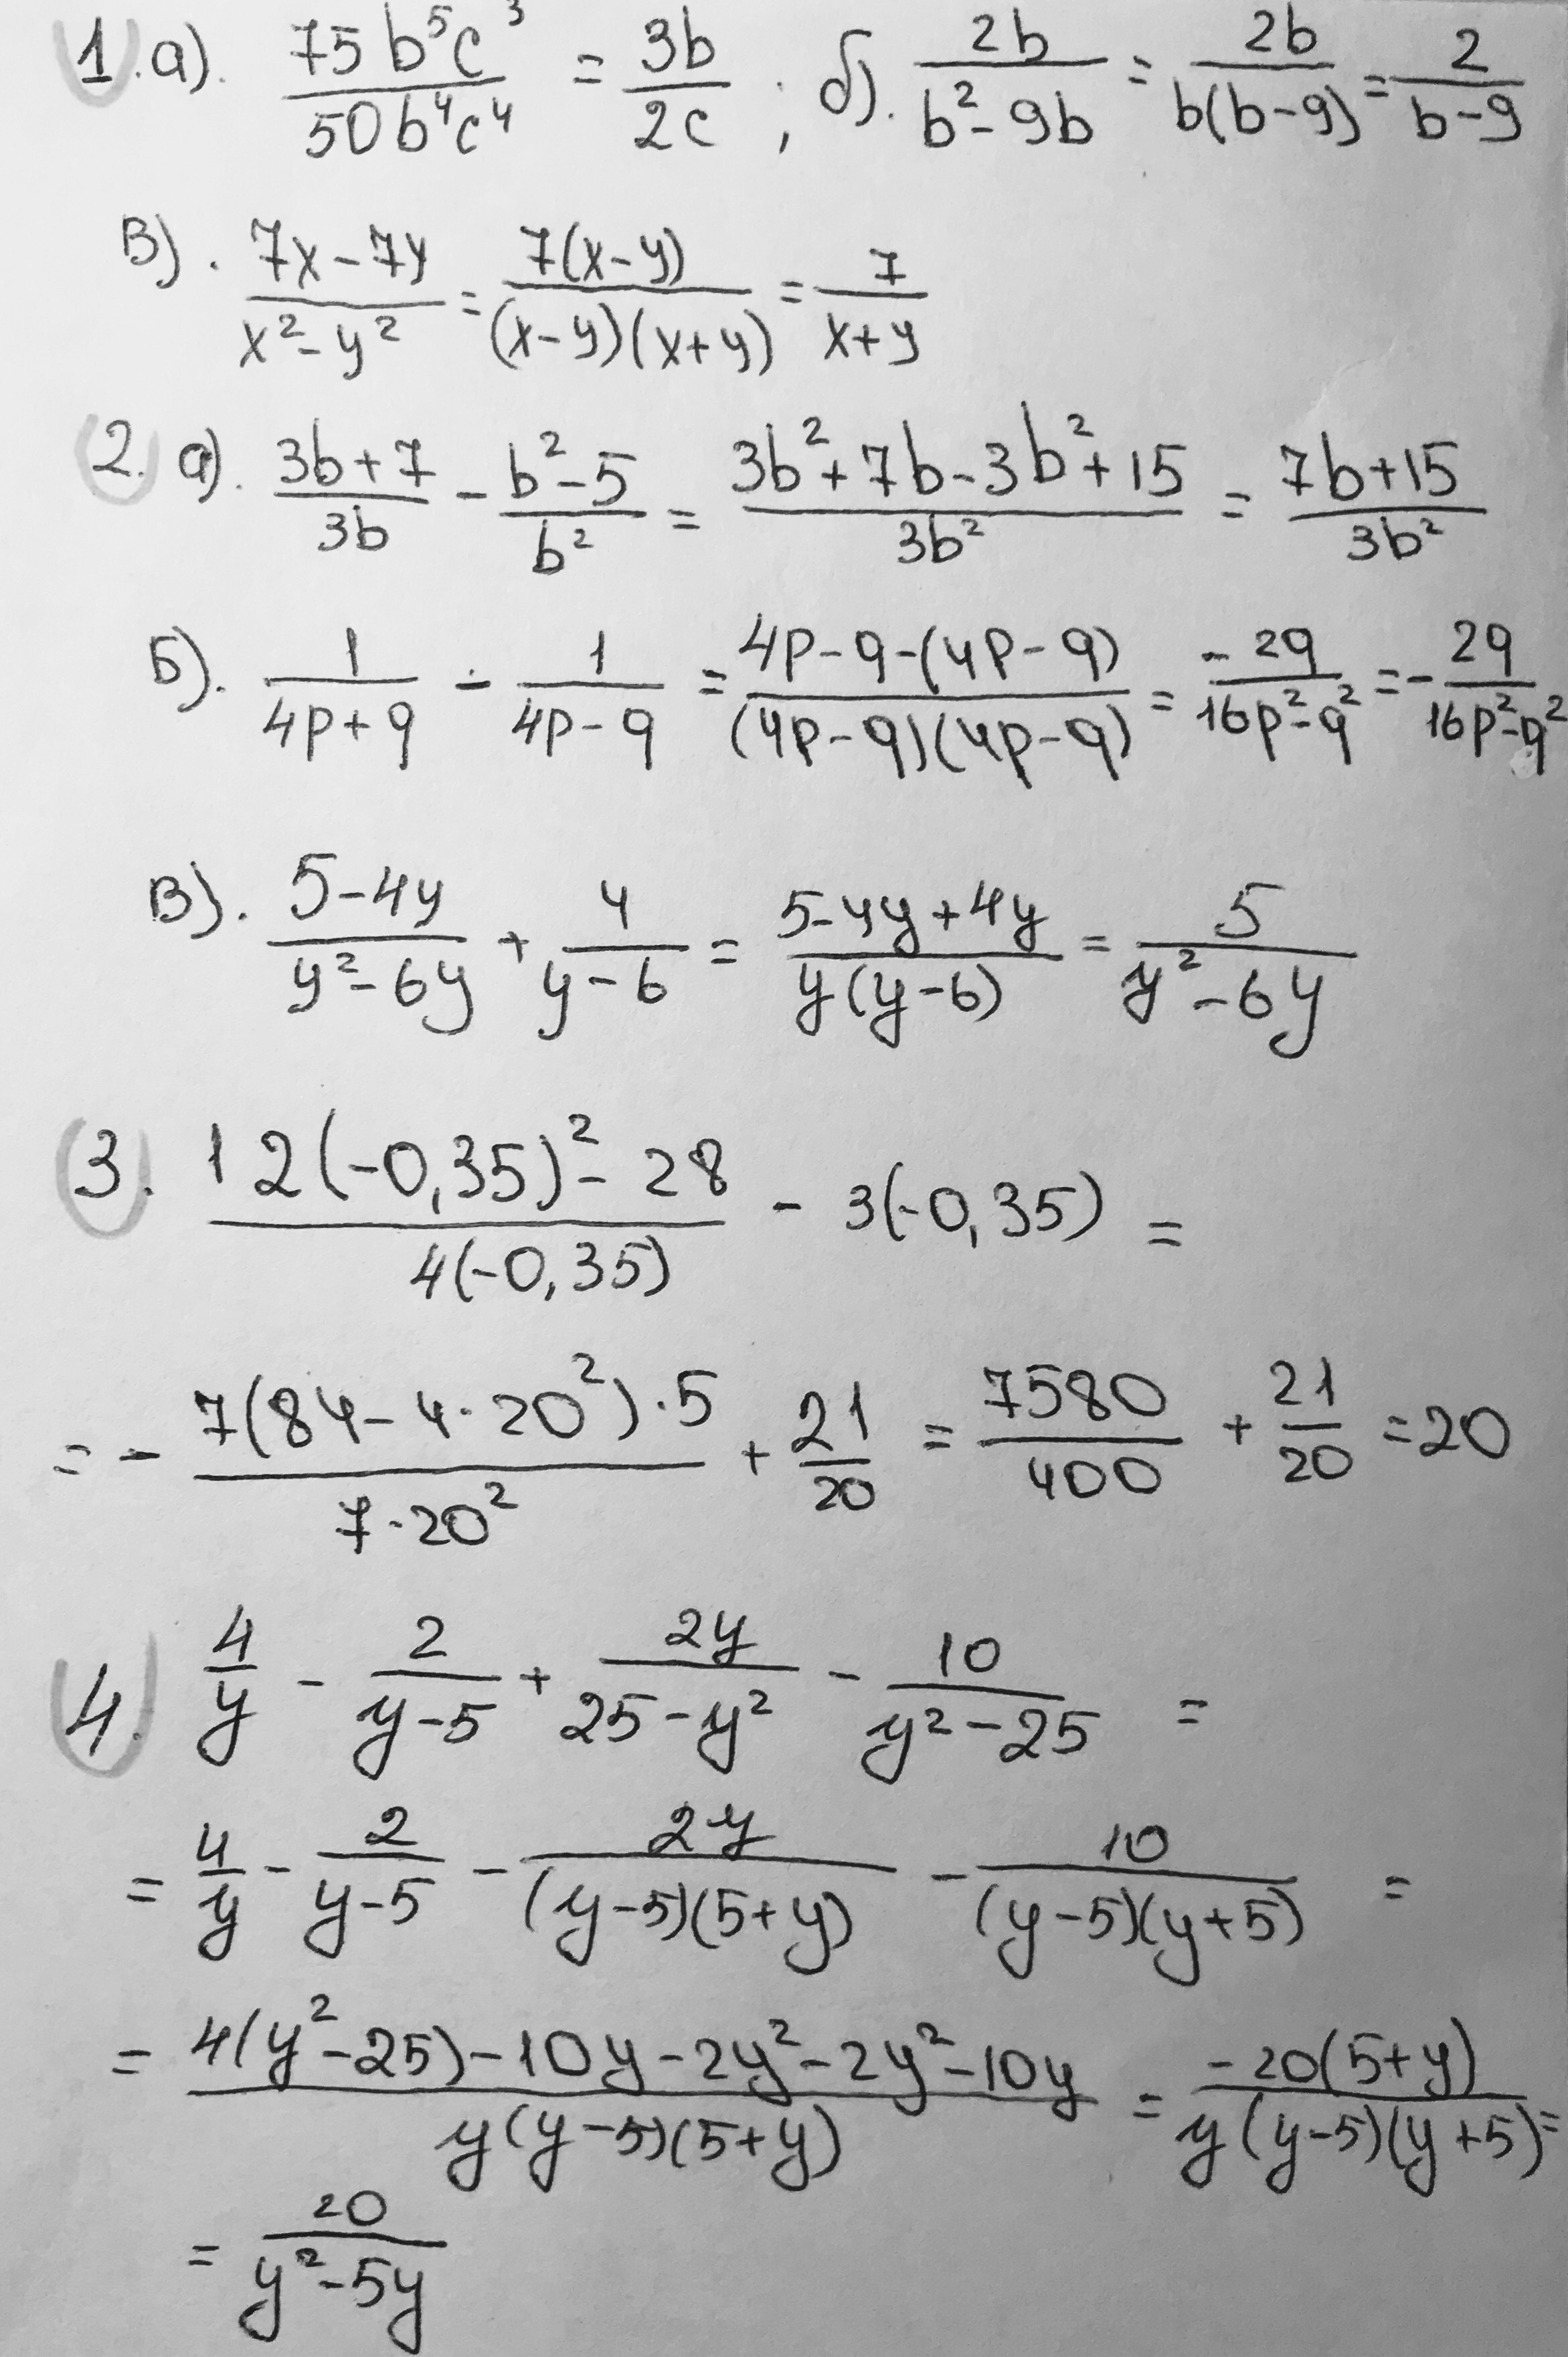 1. а). 75b⁵c³/50b⁴c⁴ = 3b/2c ; б). 2b/b²-9b = 2b/b(b-9) = 2/b-9
В). 7x-7y/x²-y² = 7(x-y)/(x-y)(x+y) = 7/x+y
2. а). 3b+7/3b - b²-5/b² = 3b²+7b-3b²+15/3b² = 7b+15/3b²
Б). 1/4p+q - 1/4p-q = 4p-q-(4p-q)/(4p-q)(4p-q) = -2q/16p²-q² = -2q/16p²-q²
В). 5-4y/y²-6y + 4/y-6 = 5-4y+4y/y(y-6) = 5/y²-6y
3. 12(-0,35)²-28/4(-0,35) - 3(-0,35) =
= - 7(84-4·20²)·5/7·20² + 21/20 = 7580/400 + 21/20 = 20
4. 4/y - 2/y-5 + 2y/25-y² - 10/y²-25 =
= 4/y - 2/y-5 - 2y/(y-5)(5+y) - 10/(y-5)(y+5) =
= 4(y²-25)-10y-2y²-2y²-10y/y(y-5)(5+y) = -20(5+y)/y(y-5)(y+5) =
= 20/y²-5y